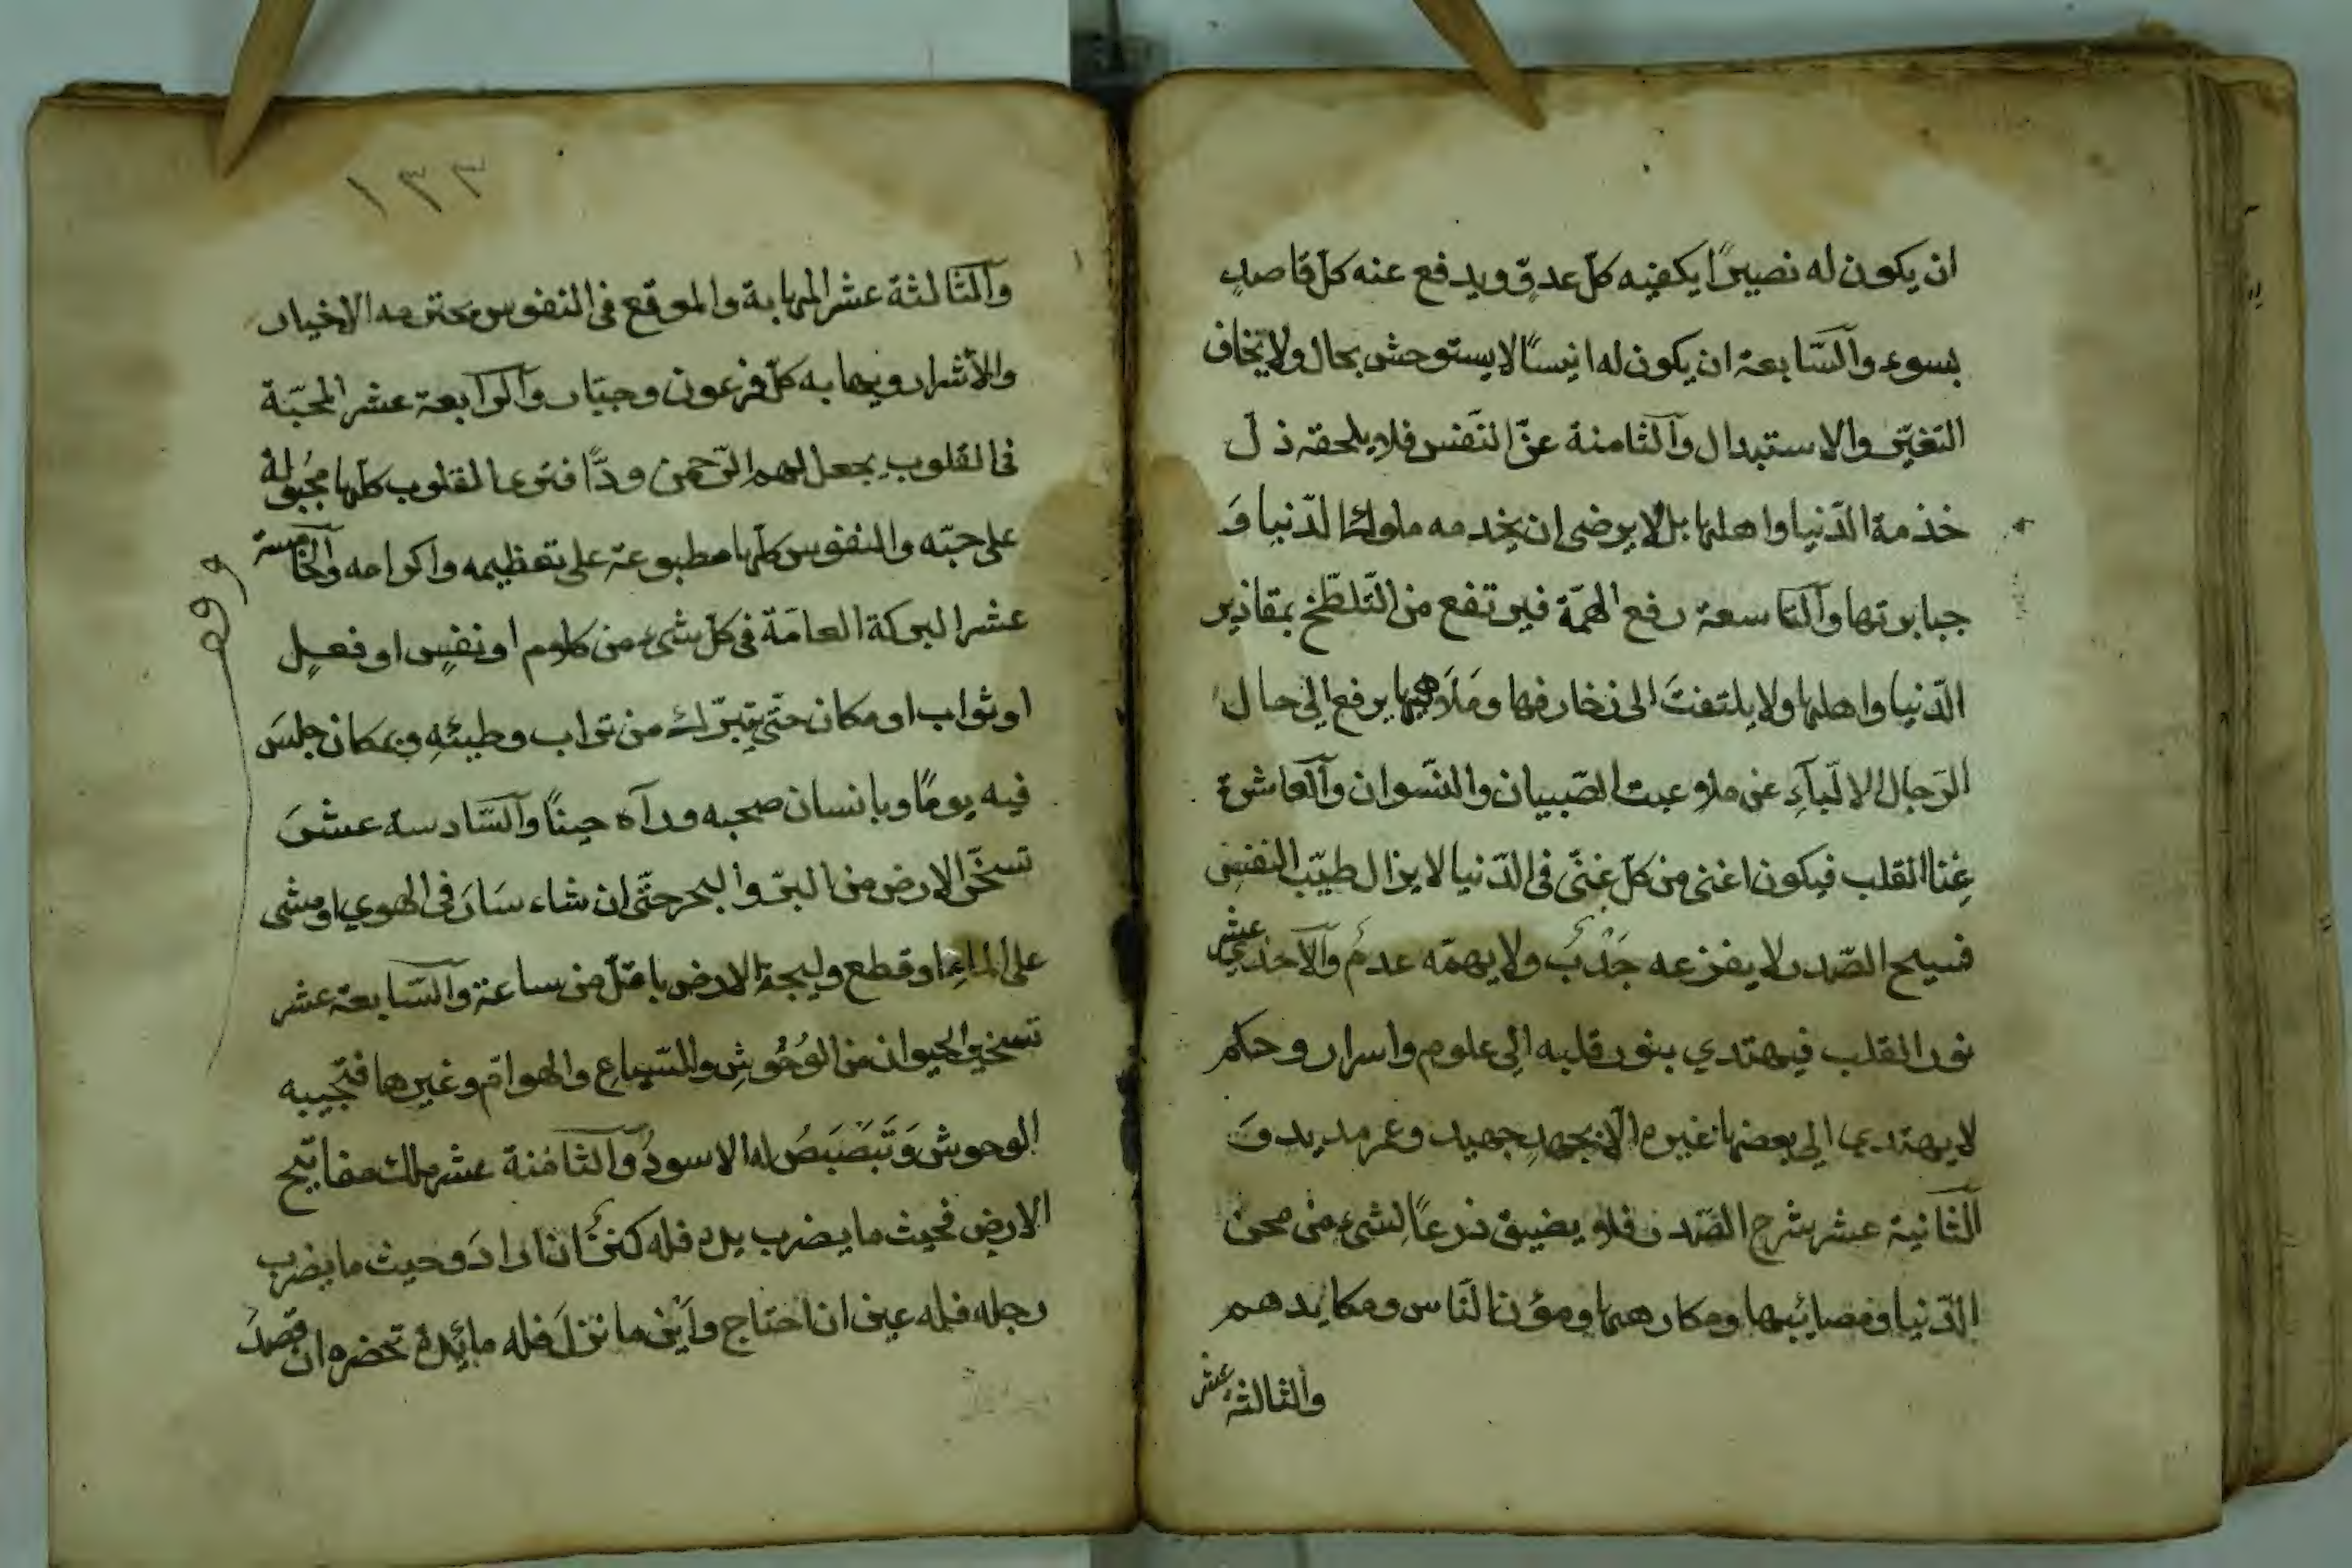 ان يكون له نصيرًا يكفيه كلّ عدوّ ويدفع عنه كلّ قاصدٍ
بسوء والسّابعة ان يكون له انيسًا لا يستوحش بحال ولا يخاف
التغيّر والاستبدال والثامنة عزّ النّفس فلا يلحقه ذلّ
خذمة الدّنيا واهلها بل لا يرضى ان يخدمه ملوك الدّنيا وَ
جبابرتها والتاسعة رفع الهمّة فيرتفع من التّلطّخ بمقاذير
الدّنيا واهلها ولا يلتفتَ الى زخارفها ومَلَاهيها يرفع الى حال
الرّجال الالبّآءِ عن ملاعبت الصّبيان والنّسوان والعاشرة
غِنا القلب فيكون اغنى من كلّ غنّى فى الدّنيا لا يزال طيّب النفسِ
فسيح الصّدر لا يفزعه جَدْبٌ ولا يهمّه عدمٌ والاحدي عشر
نور القلب فيهتدي بنور قلبه الى علوم واسرار وحكم
لا يهتدي الى بعضها غيره الّا بجهدٍ جهيد وعمر مديد وَ
الثانية عشر شرح الصّدر فلا يضيق ذرعًا لشىءٍ من محن
الدّنيا ومصائبها ومكارهها ومؤن النّاس ومكايدهم
والثالثة عشر
١٣٣
والثالثة عشر المهابة والموقع فى النفوس يحترمه الاخيار
والأشرار ويهابه كلّ فرعون وجبّار والرّابعة عشر المحبّة
فى القلوب يجعل لهم الرّحمن ودًّا فترى القلوب كلّها مجُبولة
على حبّه والنفوس كلّها مطبوعة على تعظيمه واكرامه والخامسة
عشر البركة العامّة فى كلّ شىء من كلام او نفسٍ او فعلٍ
او ثواب او مكان حتّى يتبرّك من تراب وطيئهِ وبمكان جلسَ
فيه يومًا وبانسان صحبه ورآه حينًا والسّادسة عشرَ
تسخّر الارض من البرّ والبحر حتّى ان شاء سَارَ فى الهوي او مشى
على الماءِ او قطع وليجة الارض باقلّ من ساعة والسّابعة عشر
تسخير الحيوان من الوُحُوشِ والسّباعِ والهوامّ وغيرها فتجيبه
الوحوش وَتَبَصْبَصُ له الاسودُ والثامنة عشر ملك مفاتيح
الارض فحيث ما يضرب يده فله كنزٌ ان ارادَ وحيث ما يضرب
رجله فله عين ان احتاج وأيْن ما نزلَ فله مائدة تحضره ان قصدَ
وقف